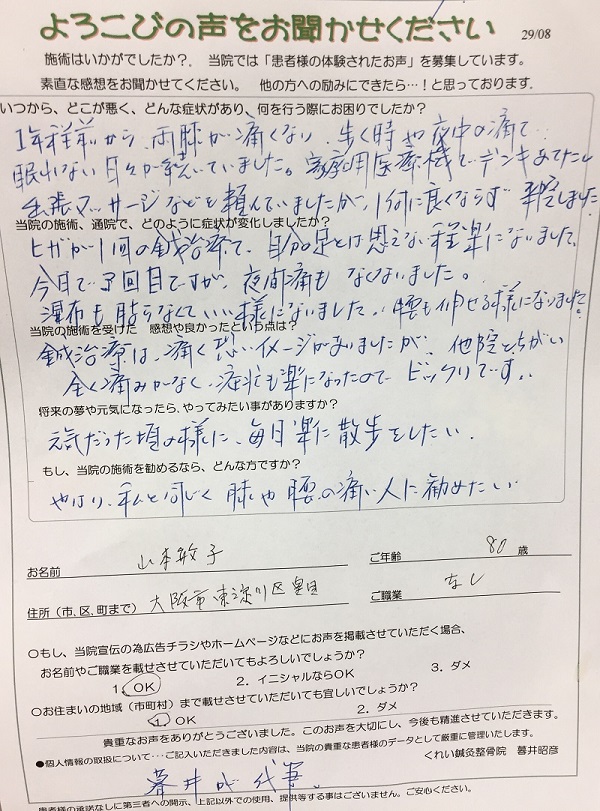 よろこびの声をお聞かせください
29/08
施術はいかがでしたか?. 当院では「患者様の体験されたお声」を募集しています。
素直な感想をお聞かせください。 他の方への励みにできたら…!と思っております.
いつから、どこが悪く、どんな症状があり、何を行う際にお困りでしたか?
1年程前から、両膝が痛くなり、歩く時や夜中の痛で
眠れない日々が続いていました。家庭用医療機でデンキあてたり
出張マッサージなどを頼んでいましたが、1何に良くならず 来院しました
当院の施術、通院で、どのように症状が変化しましたか?
ヒザが1回の鍼治療で、自分の足とは思えない程楽になりました、
今日で3回目ですが、夜間痛もなくなりました。
湿布も貼らなくていい様になりました.. 腰も伸せる様になりました
当院の施術を受けた 感想や良かったという点は?
鍼治療は、痛く恐いイメージがありましたが、他院とちがい
全く痛みがなく、症状も楽になったので ビックリです。
将来の夢や元気になったら、やってみたい事がありますか?
元気だった頃の様に、毎日楽に散歩をしたい.
もし、当院の施術を勧めるなら、どんな方ですか?
やはり、私と同じく膝や腰の痛い人に勧めたい
お名前 山本敏子
ご年齢 80 歳
住所(市、区、町まで) 大阪市東淀川区豊里
ご職業 なし
〇もし、当院宣伝の為広告チラシやホームページなどにお声を掲載させていただく場合、
お名前やご職業を載せさせていただいてもよろしいでしょうか?
1. OK 2. イニシャルならOK 3. ダメ
〇お住まいの地域(市町村)まで載せさせていただいても宜しいでしょうか?
1. OK 2. ダメ
貴重なお声をありがとうございました。このお声を大切にし、今後も精進させていただきます。
●個人情報の取扱について…ご記入いただきました内容は、当院の貴重な患者様のデータとして厳重に管理いたします。
くれい鍼灸整骨院 暮井昭彦
暮井 代筆。
患者様の承諾なしに第三者への開示、上記以外での使用、提供等する事はございません。ご安心ください。